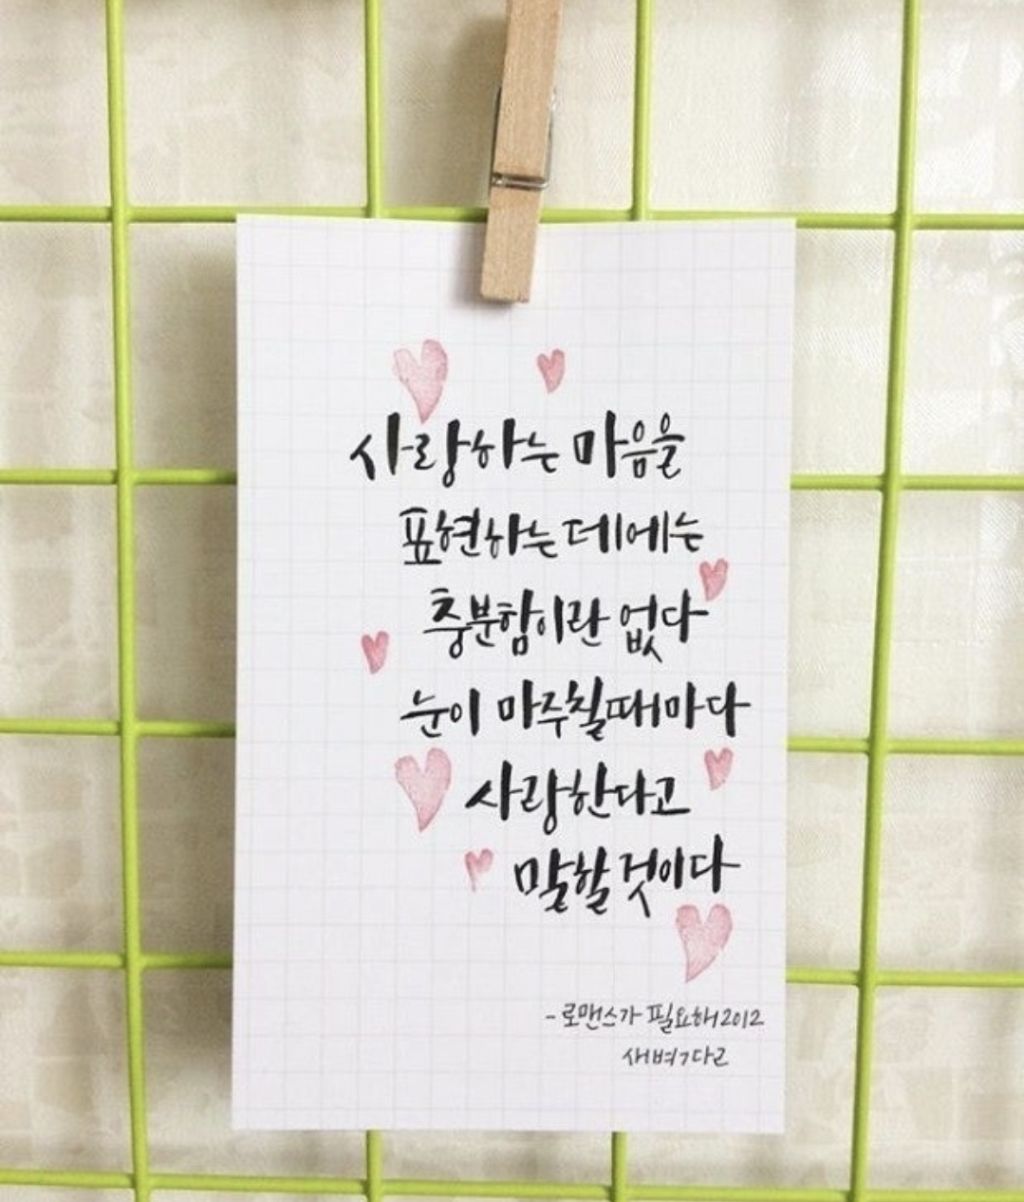 사랑하는 마음을
표현하는데에는
충분함이란 없다
눈이 마주칠때마다
사랑한다고
말할 것이다
- 로맨스가 필요해2012